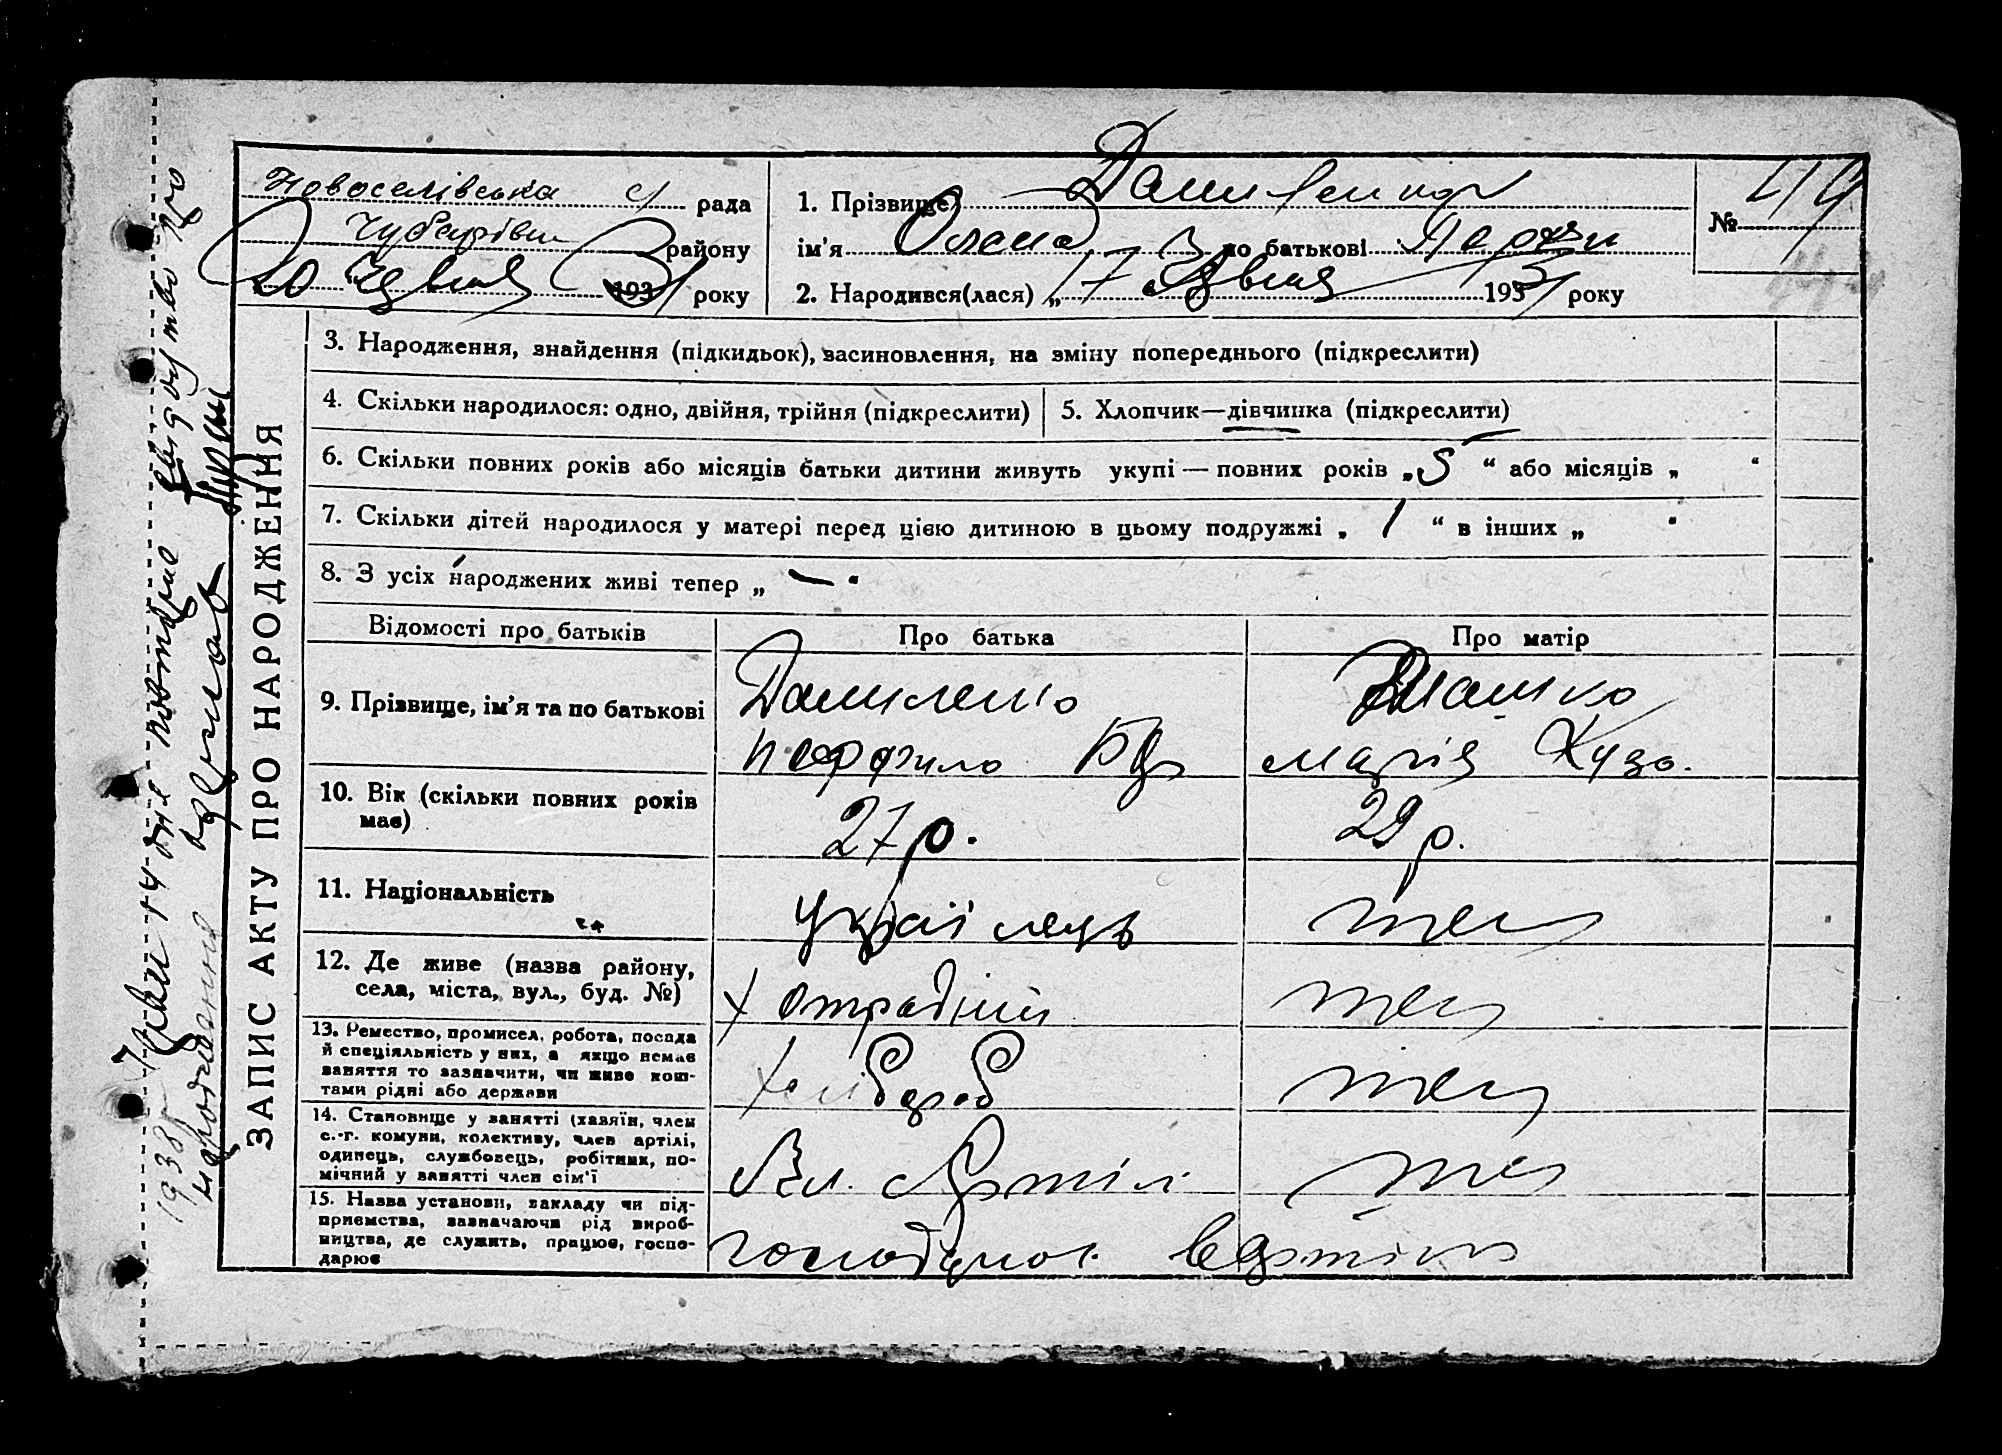 Новоселівська с/ рада
Чубарівськ району
20 червня 1931 року
1. Прізвище Даниленко
№ 44
ім'я Олена по батькові Парфил
2. Народився(лася) „17 червня 1931 року
ЗАПИС АКТУ ПРО НАРОДЖЕННЯ
3. Народження, знайдення (підкидьок), засиновлення, на зміну попереднього (підкреслити)
4. Скільки народилося: одно, двійня, трійня (підкреслити)
5. Хлопчик—дівчинка (підкреслити)
6. Скільки повних років або місяців батьки дитини живуть укупі — повних років „5“ або місяців „ “
7. Скільки дітей народилося у матері перед цією дитиною в цьому подружжі „1“ в інших „ “
8. З усіх народжених живі тепер „—“
Відомості про батьків
Про батька
Про матір
9. Прізвище, ім'я та по батькові
Даниленко
Парфило
Марія Кузь.
10. Вік (скільки повних років має)
27 р.
29 р.
11. Національність
українець
теж
12. Де живе (назва району,
села, міста, вул., буд. №)
х Отрадний
теж
13. Ремество, промисел, робота, посада
й спеціяльність у них, а якщо немає
заняття то зазначити, чи живе кош-
тами рідні або держави
хлібороб
теж
14. Становище у занятті (хазяїн, член
с.-г. комуни, колективу, член артілі,
одинець, службовець, робітник, по-
мічний у занятті член сім'ї
Чл. Артілі
теж
15. Назва установи, закладу чи під-
приємства, зазначаючи рід вироб-
ництва, де служить, працює, госпо-
дарює
господарює в артілі
1938 14 дня повторне свідоцтво про
народження одержав